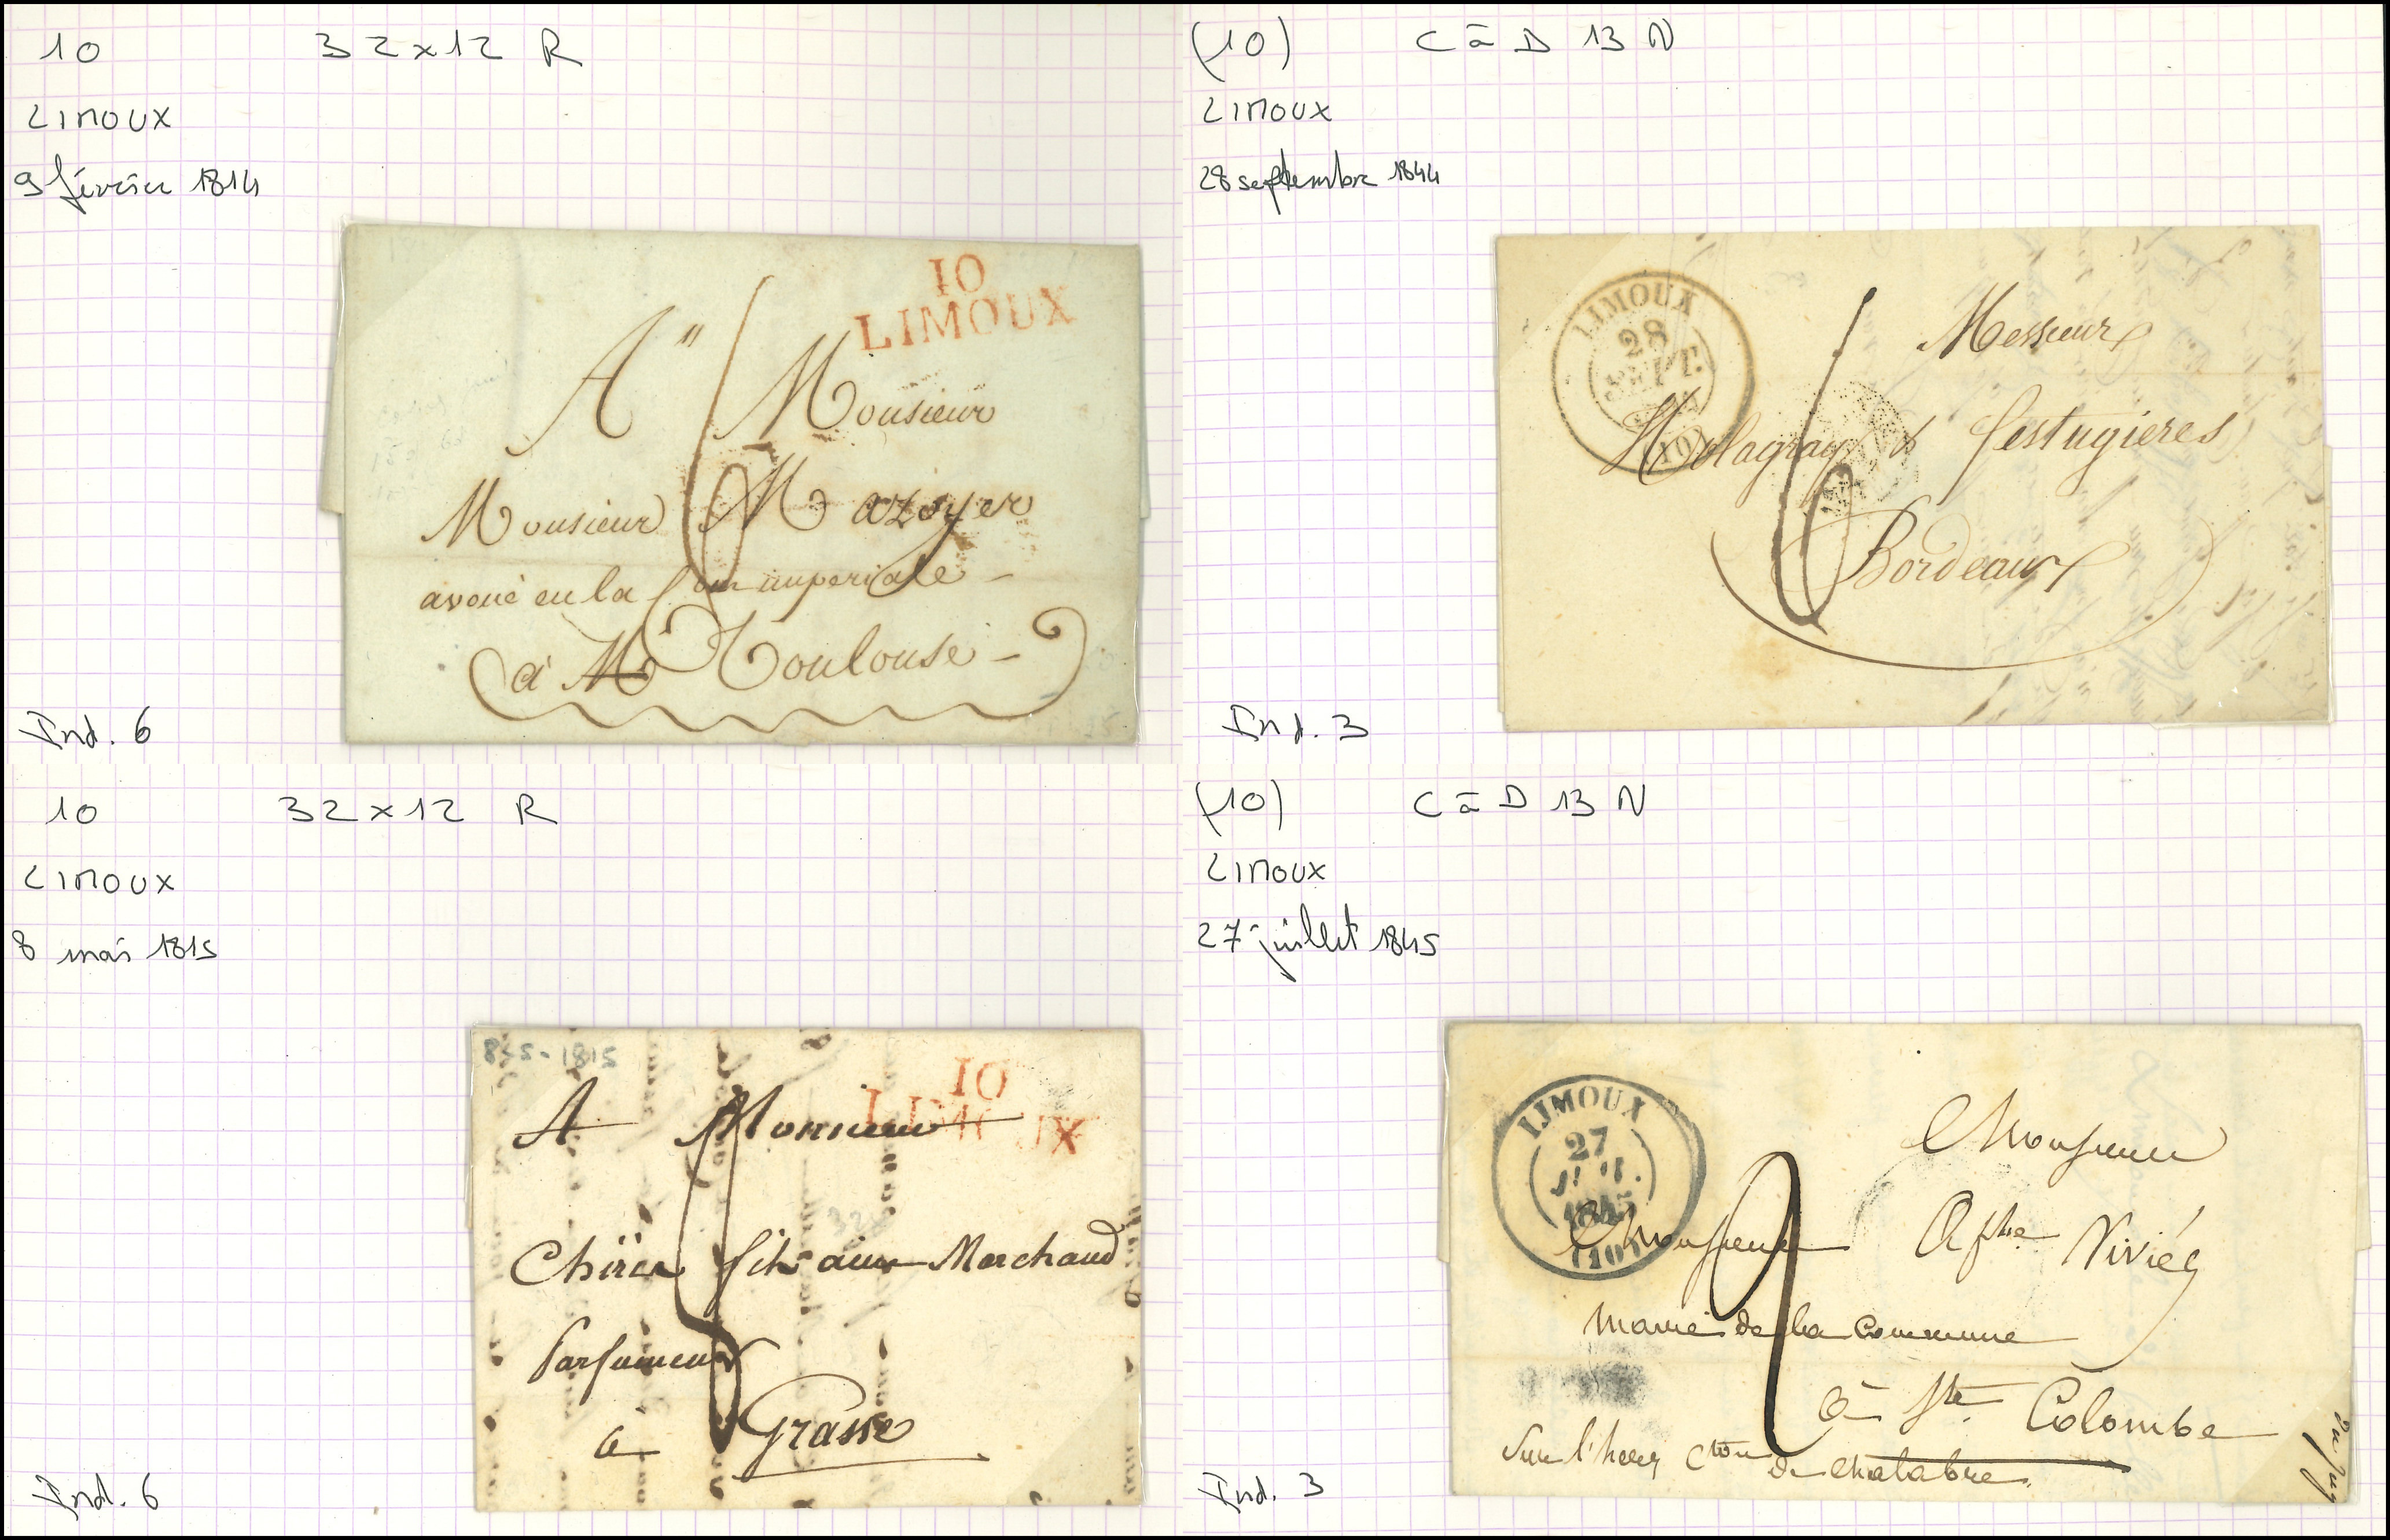 10 32x12 R
LIMOUX
9 février 1814
10
LIMOUX
A" Monsieur
6
Monsieur Mazoyer
avoué en la Cour imperiale
à Toulouse
Ind. 6
(10) C à D 13 N
LIMOUX
28 septembre 1844
LIMOUX
28
SEPT.
(10)
6
Messieurs
& festugieres
Bordeaux
Ind. 3
10 32x12 R
LIMOUX
8 mai 1815
8-5-1815
10
LIMOUX
A Monsieur
Chiris fils ainé Marchand
Parfumeur
à Grasse
Ind. 6
(10) C à D 13 N
LIMOUX
27 juillet 1845
LIMOUX
27
JUIL.
1845
(10)
2
Monsieur
Monsieur
maire de la Commune
à Ste Colombe
Sur l'hers Cton de Chalabre
Ind. 3